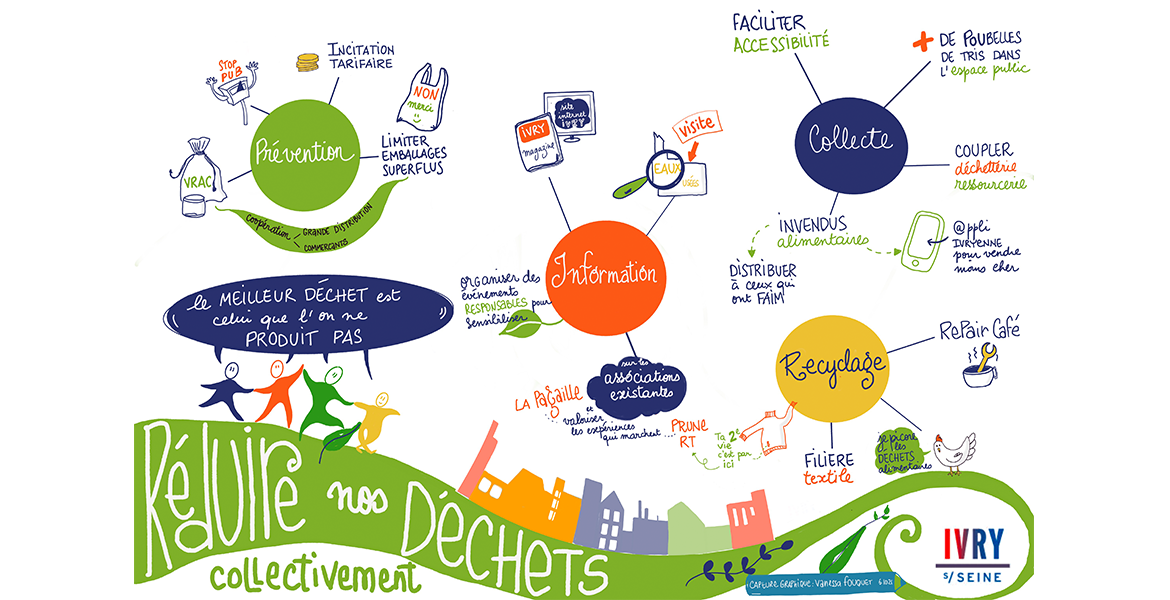 STOP
PUB
INCITATION
TARIFAIRE
NON
merci
Prévention
LIMITER
EMBALLAGES
SUPERFLUS
VRAC
Coopération
GRANDE DISTRIBUTION
COMMERCANTS
le MEILLEUR DÉCHET est
celui que l'on ne
PRODUIT PAS
IVRY
magazine
site
internet
visite
EAUX
USÉES
Information
ORGANISER des
événements
RESPONSABLES pour
sensibiliser
sur les
associations
existantes
LA PAGAILLE
et
valoriser
les expériences
qui marchent
PRUNE
RT
FACILITER
ACCESSIBILITÉ
+ DE POUBELLES
DE TRIS DANS
L'espace public
Collecte
COUPLER
déchetterie
ressourcerie
INVENDUS
alimentaires
DISTRIBUER
à ceux qui
ont FAIM
@ppli
IVRYENNE
pour vendre
moins cher
Recyclage
RePair Café
Ta 2e
vie
c'est par
ici
FILIÈRE
textile
je picore
les
DÉCHETS
alimentaires
Réduire nos DÉCHETS
collectivement
CAPTURE GRAPHIQUE : VANESSA FOUQUET
IVRY
S/SEINE